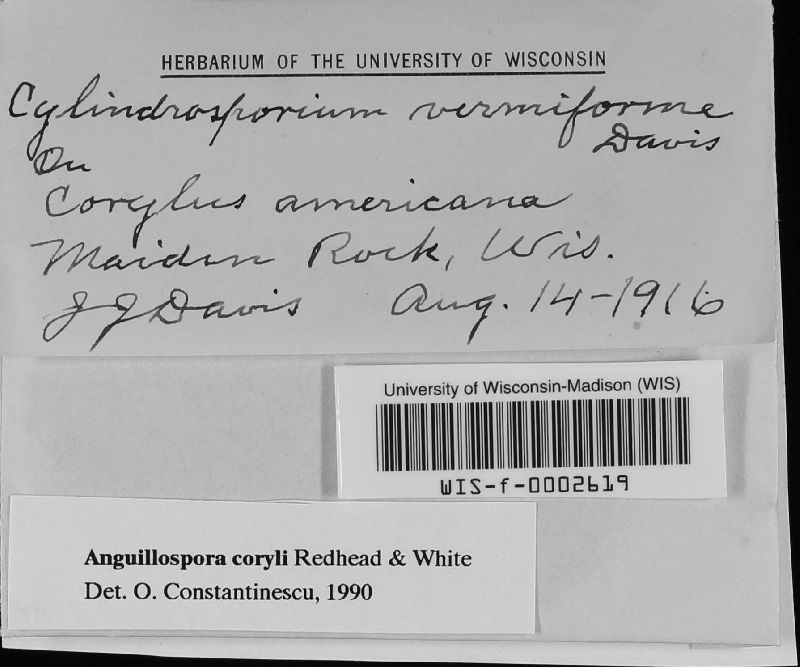 HERBARIUM OF THE UNIVERSITY OF WISCONSIN
Cylindrosporium vermiforme
Davis
On
Corylus americana
Maiden Rock, Wis.
J J Davis Aug. 14-1916
University of Wisconsin-Madison (WIS)
WIS-f-0002619
Anguillospora coryli Redhead & White
Det. O. Constantinescu, 1990